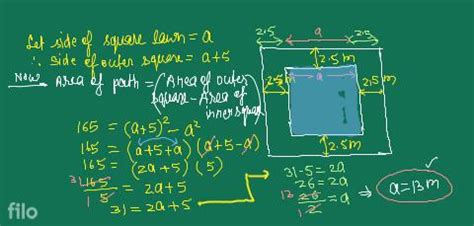 Let side of square lawn = a
∴ side of outer square = a+5
Now, Area of path = (Area of outer square - Area of inner square)
165 = (a+5)² - a²
165 = (a+5+a) (a+5-a)
165 = (2a+5) (5)
31 165/15 = 2a+5
31 = 2a+5
31-5 = 2a
26 = 2a
13 26/12 = a
⇒ a=13m
2.5 a 2.5
2.5m
a
2.5m 2.5m
2.5m
filo